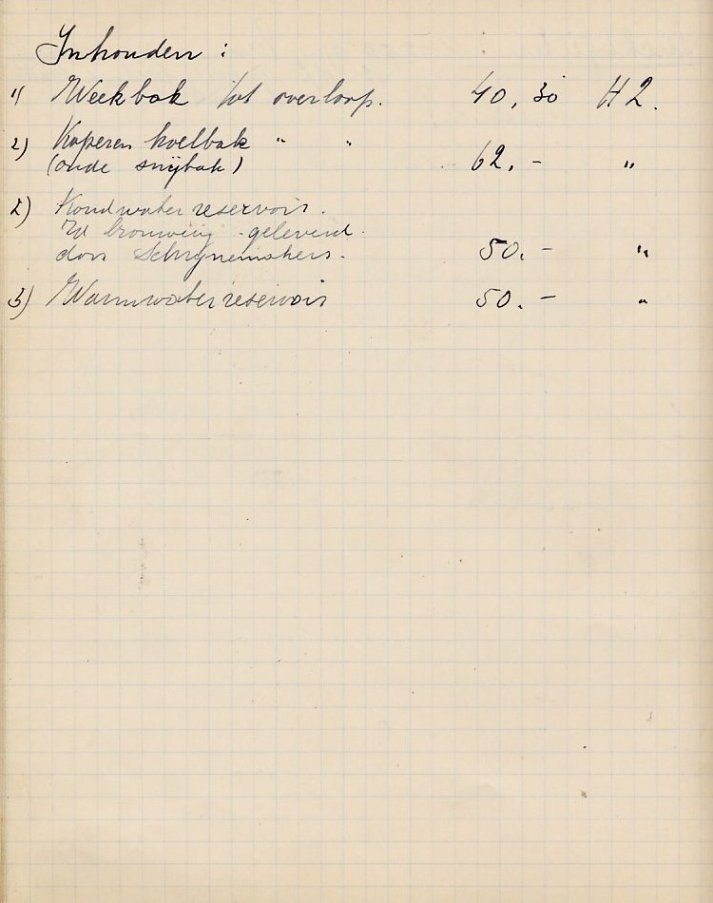 Inhouden :
1) Weekbak tot overloop. 40,30 Hl.
2) Koperen koelbak " " 62.- "
(oude snijbak)
2) Koudwaterreservoir.
brouwerij geleverd
door Schrijnemakers. 50.- "
3) Warmwaterreservoir 50.- "